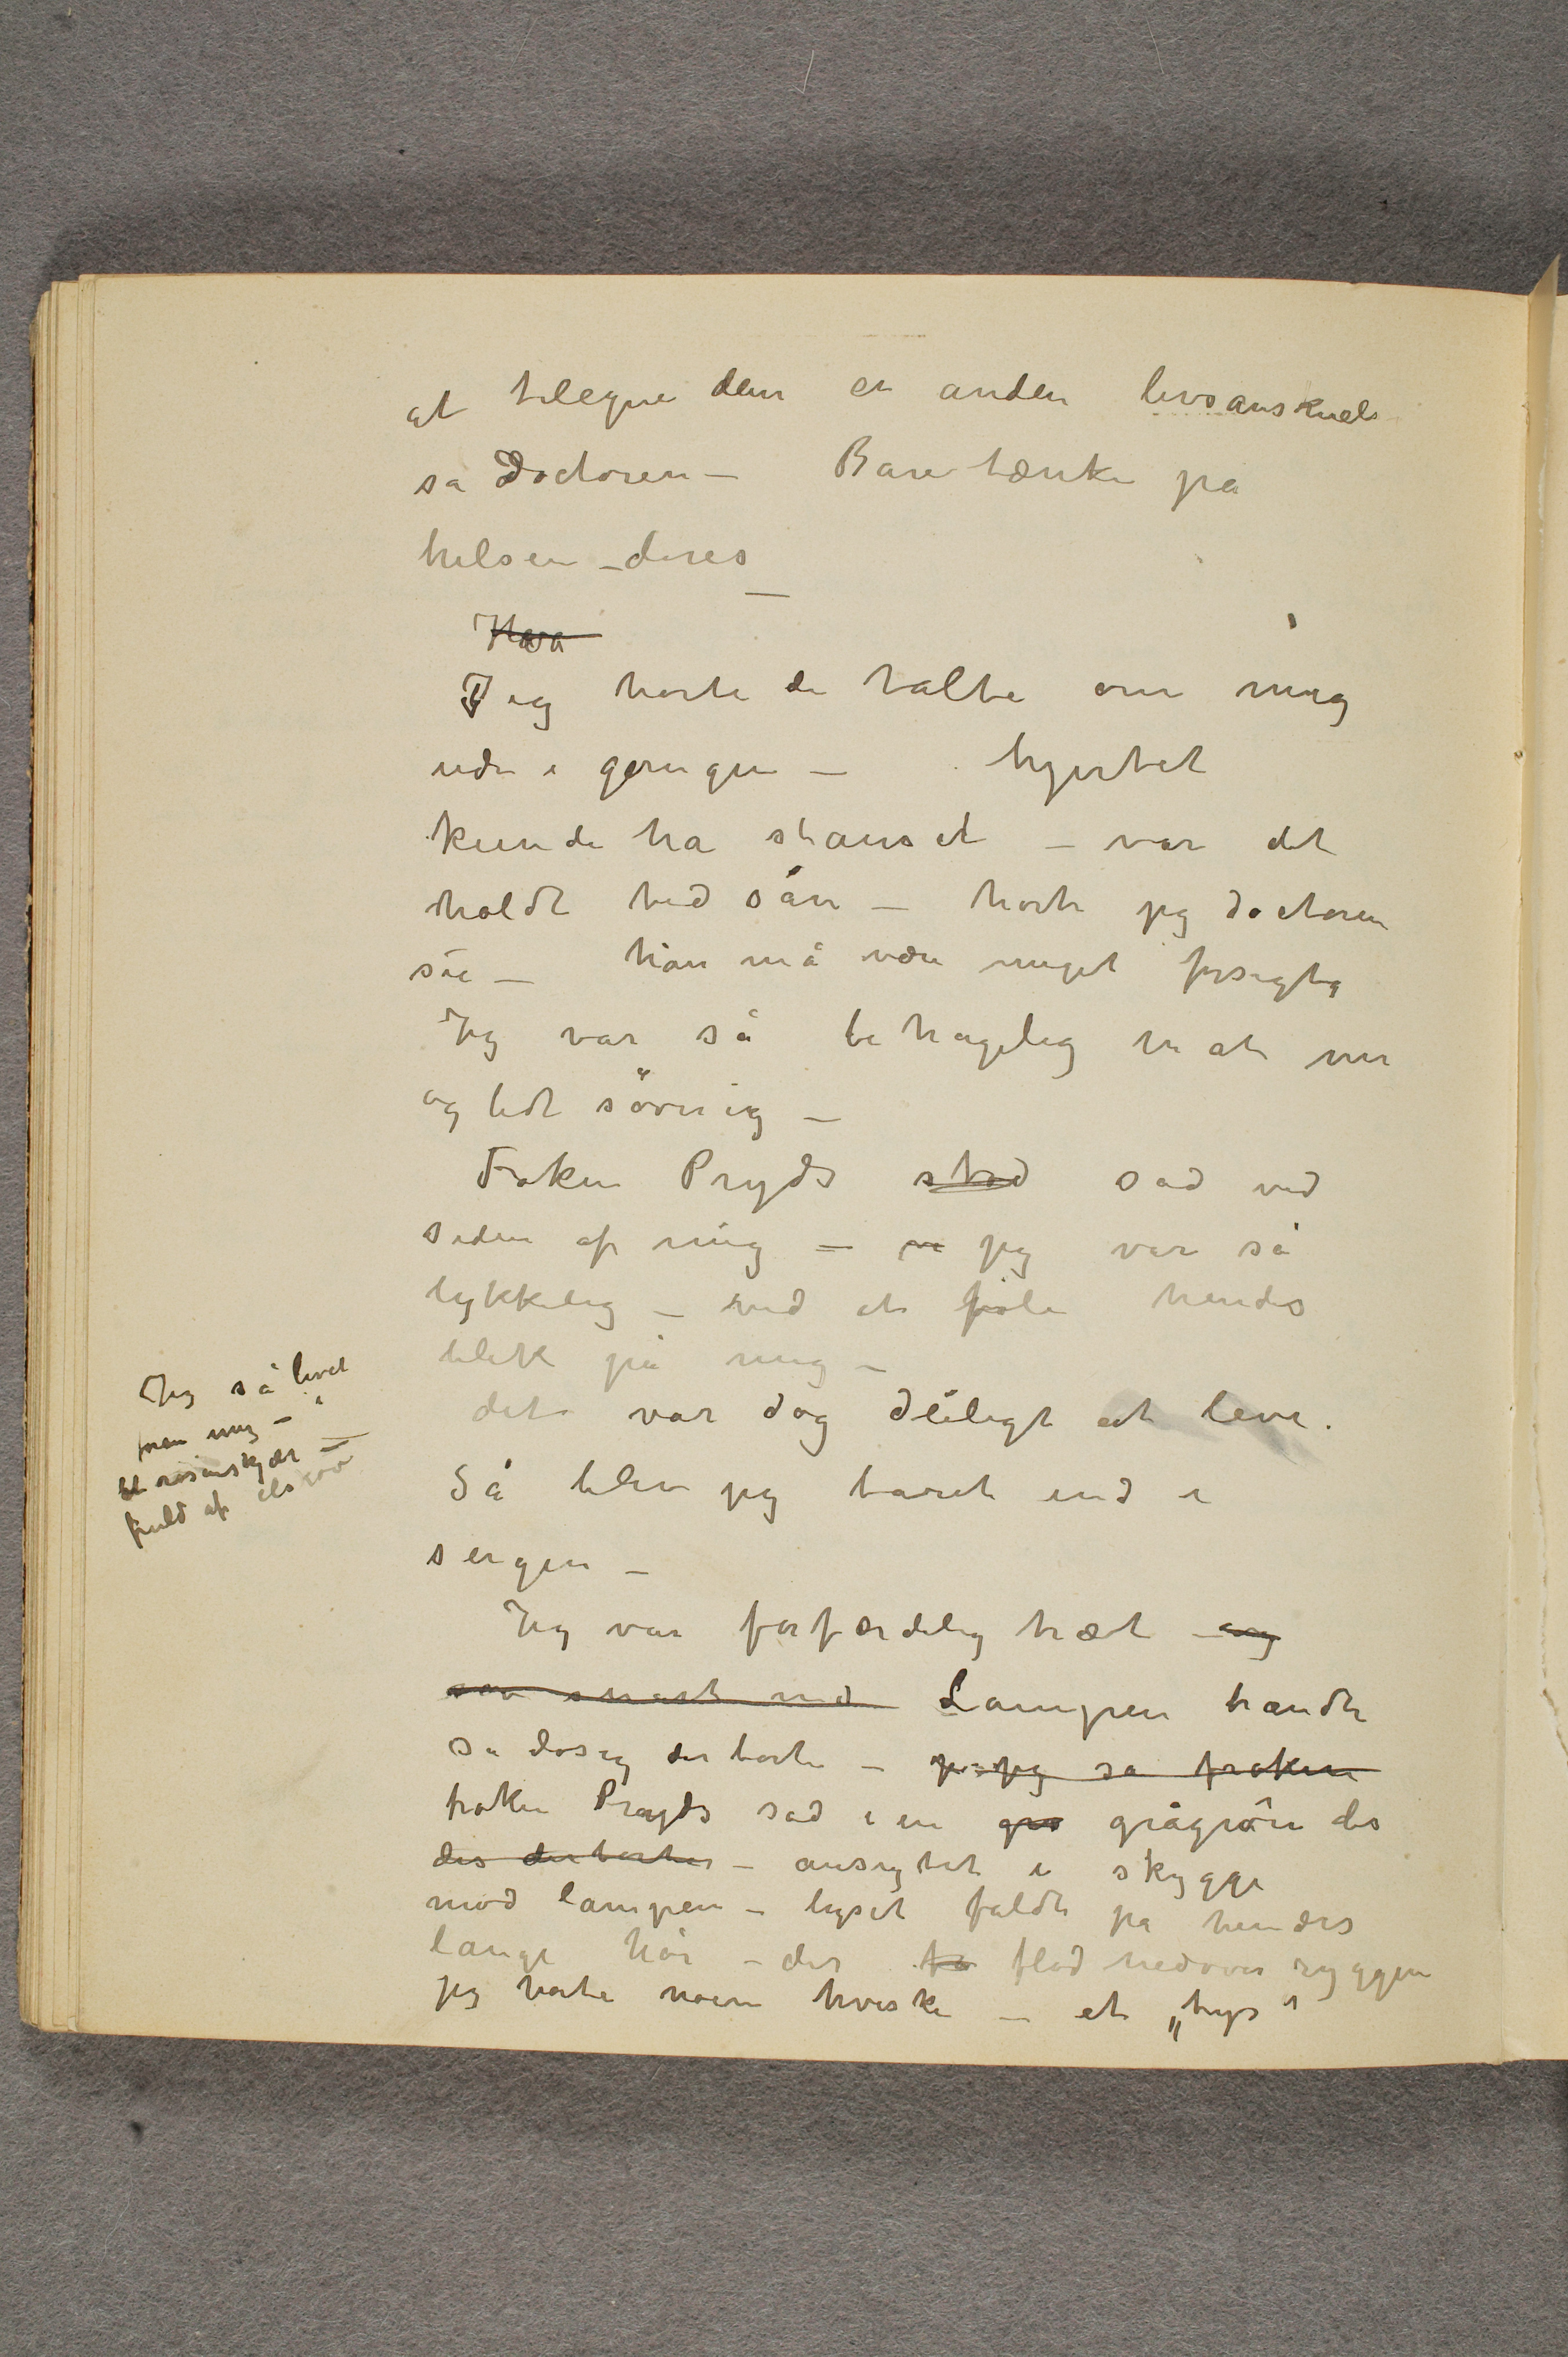 at tilegne dem en anden livsanskuels
sa Doctoren – Bare tænke på
helsen – deres –
Hva
Jeg hørte de talte om mig
ude i gangen – hjertet
kunde ha stanset – var det
holdt ved sån – hørte jeg doctoren
säe – han må være meget forsigtig
Jeg var så behagelig mat nu
og lidt søvnig –
Frøken Pryds stod sad ved
siden af mig – jeg var så
lykkelig – ved at føle hendes
blik på mig –
det var dog deiligt at leve.
Så blev jeg baret ind i
sengen –
Jeg var forfærdelig træt – og
sov snart ind Lampen brændte
så døsig der borte – jeg så frøken
frøken Pryds sad i en grå grågrøn dis
dis der borte – ansigtet i skygge
mod lampen – lyset faldt på hendes
lange hår – der fa flød nedover ryggen
jeg hørte noen hviske – et „hys“
Jeg så livet
foran mig – i
et rosenskjær –
fuld af elskov